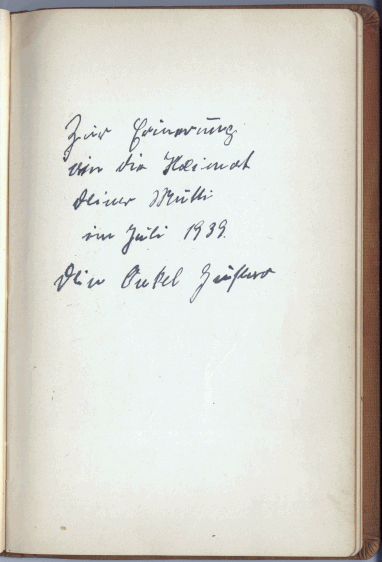 Zur Erinnerung
an die Heimat
Deiner Mutti
im Juli 1939.
Dein Onkel Gustav